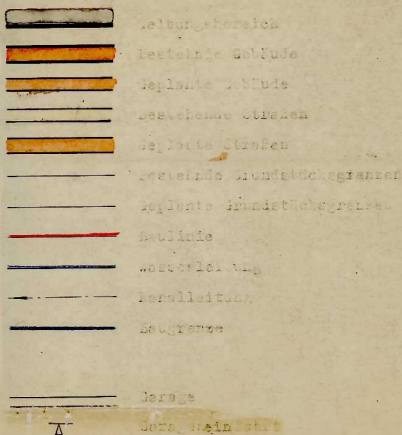 Geltungsbereich
Bestehnde Gebäude
Geplante Gebäude
Bestehende Straßen
Geplante Straßen
Bestehnde Grundstücksgrenzen
Geplante Grundstücksgrenzen
Baulinie
Wasserleitung
Kanalleitung
Baugrenze
Garage
Garageneinfahrt